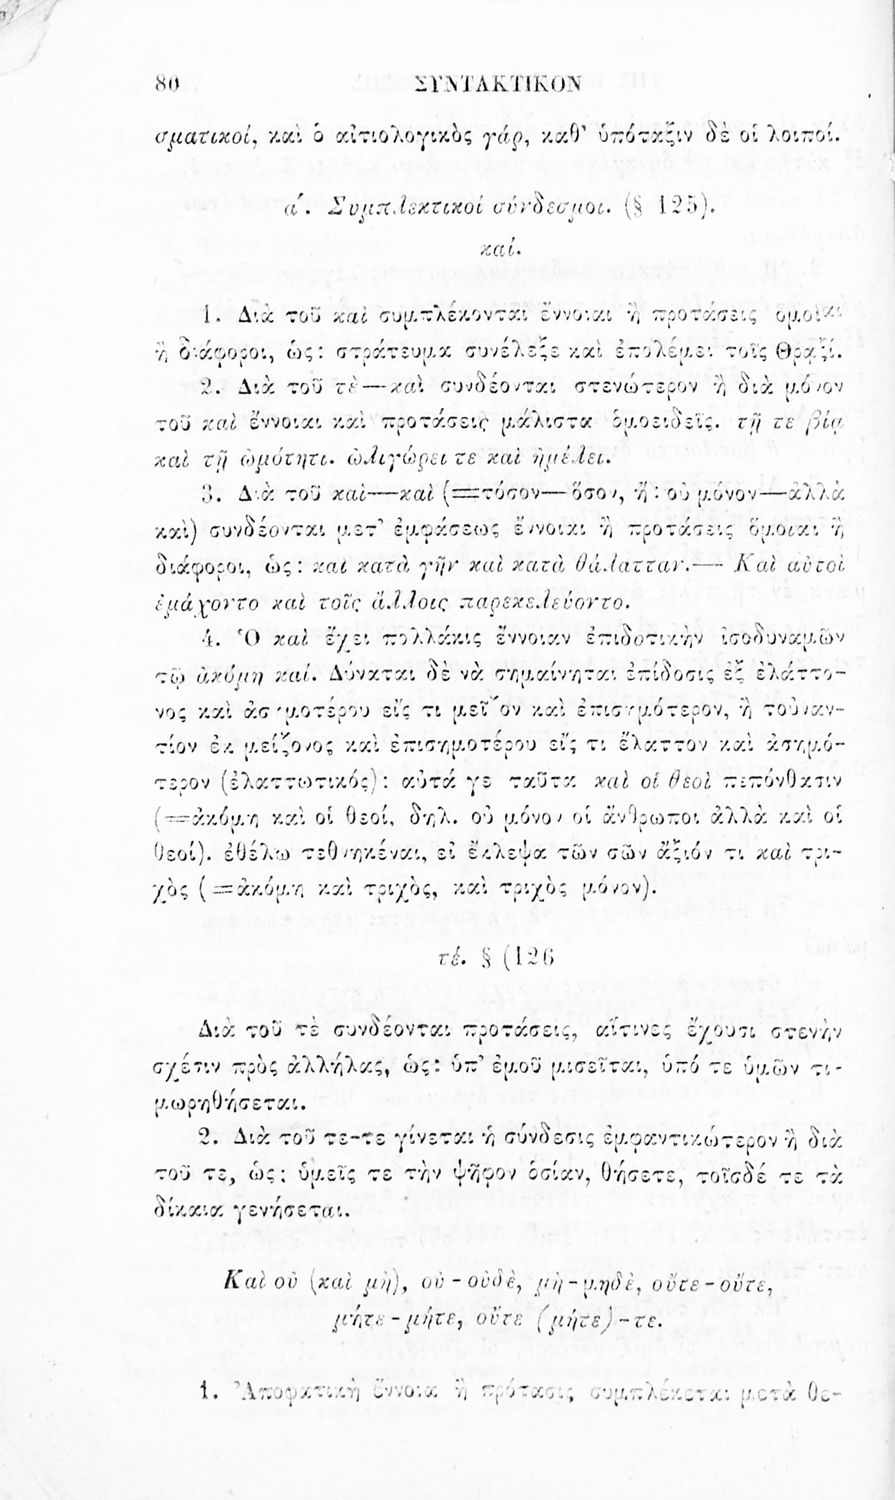 80 ΣΥΝΤΑΚΤΙΚΟΝ
σματικοί, καὶ ὁ αἰτιολογικὸς γάρ, καθ' ὑπόταξιν δὲ οἱ λοιποί.
α΄. Συμπλεκτικοὶ σύνδεσμοι. (§ 125).
καί.
1. Διὰ τοῦ καὶ συμπλέκονται ἔννοιαι ἢ προτάσεις ὅμοιαι
ἢ διάφοροι, ὡς: στράτευμα συνέλεξε καὶ ἐπολέμει τοῖς Θραξί.
2. Διὰ τοῦ τὲ — καὶ συνδέονται στενώτερον ἢ διὰ μόνον
τοῦ καὶ ἔννοιαι καὶ προτάσεις μάλιστα ὁμοειδεῖς. τῇ τε βίᾳ
καὶ τῇ ὠμότητι. ὠλιγώρει τε καὶ ἠμέλει.
3. Διὰ τοῦ καὶ—καὶ (=τόσον—ὅσον, ἤ: οὐ μόνον—ἀλλὰ
καὶ) συνδέονται μετ' ἐμφάσεως ἔννοιαι ἢ προτάσεις ὅμοιαι ἢ
διάφοροι, ὡς: καὶ κατὰ γῆν καὶ κατὰ θάλατταν.— Καὶ αὐτοὶ
ἐμάχοντο καὶ τοῖς ἄλλοις παρεκελεύοντο.
4. Ὁ καὶ ἔχει πολλάκις ἔννοιαν ἐπιδοτικὴν ἰσοδυναμῶν
τῷ ἀκόμη καί. Δύναται δὲ νὰ σημαίνηται ἐπίδοσις ἐξ ἐλάττο-
νος καὶ ἀσημοτέρου εἴς τι μεῖζον καὶ ἐπισημότερον, ἢ τοὐναν-
τίον ἐκ μείζονος καὶ ἐπισημοτέρου εἴς τι ἔλαττον καὶ ἀσημό-
τερον (ἐλαττωτικός): αὐτά γε ταῦτα καὶ οἱ θεοὶ πεπόνθασιν
(=ἀκόμη καὶ οἱ θεοί, δηλ. οὐ μόνον οἱ ἄνθρωποι ἀλλὰ καὶ οἱ
θεοί). ἐθέλω τεθνηκέναι, εἰ ἔκλεψα τῶν σῶν ἄξιόν τι καὶ τρι-
χὸς (=ἀκόμη καὶ τριχὸς, καὶ τριχὸς μόνον).
τέ. § (126
Διὰ τοῦ τὲ συνδέονται προτάσεις, αἵτινες ἔχουσι στενὴν
σχέσιν πρὸς ἀλλήλας, ὡς: ὑπ' ἐμοῦ μισεῖται, ὑπό τε ὑμῶν τι-
μωρηθήσεται.
2. Διὰ τοῦ τε-τε γίνεται ἡ σύνδεσις ἐμφαντικώτερον ἢ διὰ
τοῦ τε, ὡς: ὑμεῖς τε τὴν ψῆφον ὁσίαν, θήσετε, τοῖσδέ τε τὰ
δίκαια γενήσεται.
Καὶ οὐ (καὶ μὴ), οὐ - οὐδὲ, μὴ - μηδὲ, οὔτε - οὔτε,
μήτε - μήτε, οὔτε (μήτε) - τε.
1. Ἀποφατικὴ ἔννοια ἢ πρότασις συμπλέκεται μετὰ θε-